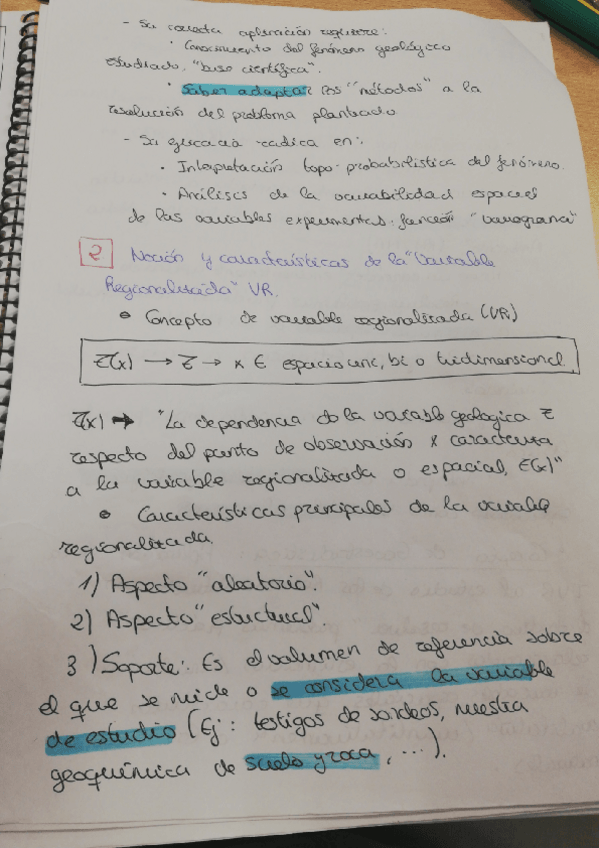 - Su correcta aplicación requiere:
• Conocimiento del fenómeno geológico
estudiado "base científica".
• Saber adaptar los "métodos" a la
resolución del problema planteado
- Su eficacia radica en:
• Interpretación topo-probabilistica del fenómeno.
• Análisis de la variabilidad espacial
de las variables experimentales: función "variograma"
2 Noción y características de la "Variable
Regionalizada" VR.
• Concepto de variable regionalizada (VR)
Z(x) → Z → x ∈ espacio unc, bi o tridimensional
Z(x) → "La dependencia de la variable geologica Z
respecto del punto de observación x caracteriza
a la variable regionalizada o espacial, Z(x)"
• Características principales de la variable
regionalizada.
1) Aspecto "aleatorio".
2) Aspecto "estructural"
3) Soporte: Es el volumen de referencia sobre
el que se mide o se considera la variable
de estudio (Ej: testigos de sondeos, muestra
geoquímica de suelo y roca, ...).